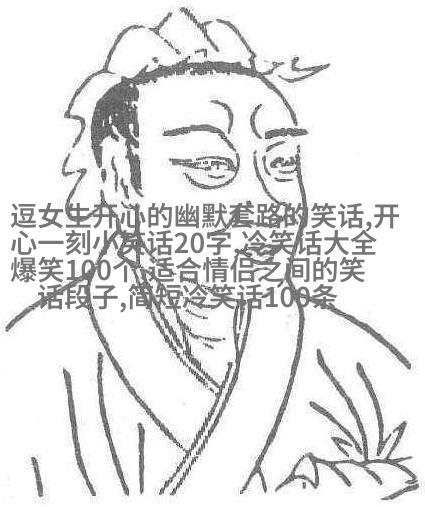 逗女生开心的幽默套路的笑话,开
心一刻小笑话20字,冷笑话大全
爆笑100个,适合情侣之间的笑
话段子,简短冷笑话100条